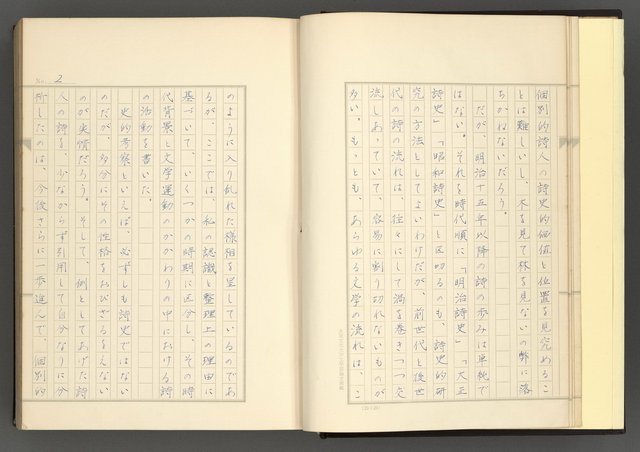 個別的詩人の詩史的価値と位置を見究めるこ
とは難しいし、木を見て林を見ないの弊に落
ちかねないだろう。
だが、明治十五年以降の詩の歩みは単純で
はない。それを時代順に「明治詩史」「大正
詩史」「昭和詩史」と区切るのも、詩史的研
究の方法としてよいわけだが、前世代と後世
代の詩の流れは、往々にして渦を巻きつつ交
流しあっていて、容易に割り切れないものが
多い。もっとも、あらゆる文学の流れは、こ
(20×20)
No. 2
のように入り乱れた様相を呈しているのであ
るが、ここでは、私の認識と整理上の理由に
基づいて、いくつかの時期に区分し、その時
代背景と文学運動のかかわりの中における詩
の活動を書いた。
史的考察といえば、必ずしも詩史ではない
のだが、多分にその性格をおびざるをえない
のが実情だろう。そして、例としてあげた詩
人の詩を、少なからず引用して自分なりに分
析したのは、今後さらに一歩進んで、個別的